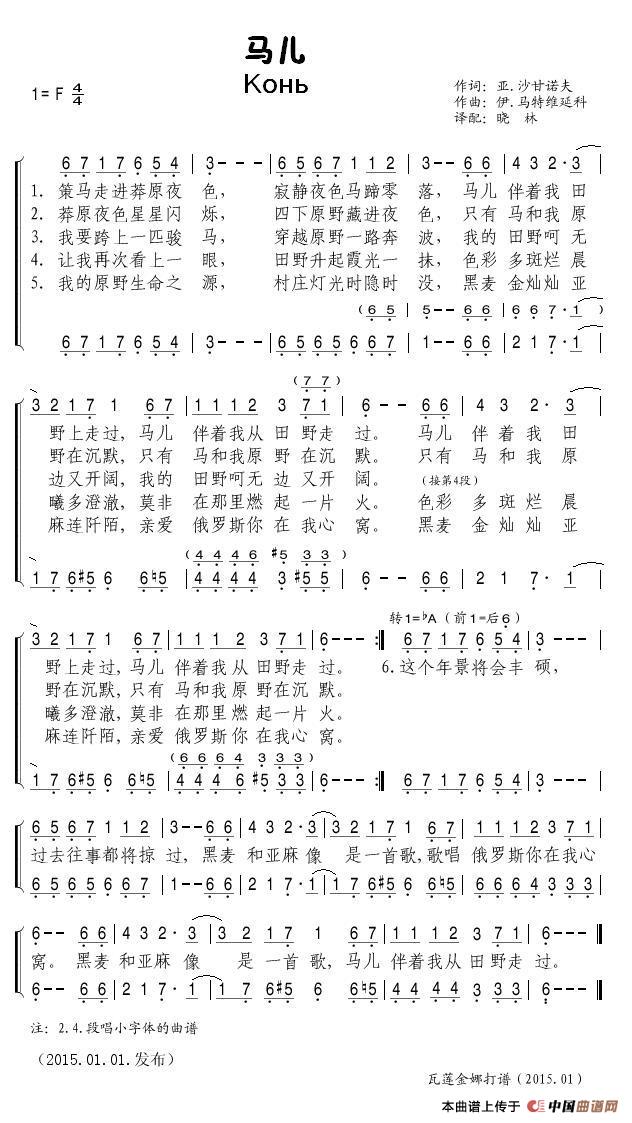 马儿
Конь
1=F 4/4
作词：亚.沙甘诺夫
作曲：伊.马特维延科
译配：晓 林
6 7 1 7 6 5 4 | 3 - - - | 6 5 6 7 1 1 2 | 3 - - 6 6 | 4 3 2 · 3 |
1. 策马走进莽原夜 色， 寂静夜色马蹄零 落， 马儿 伴着我 田
2. 莽原夜色星星闪 烁， 四下原野藏进夜 色，只有 马和我 原
3. 我要跨上一匹骏 马， 穿越原野一路奔 波，我的 田野呵 无
4. 让我再次看上一 眼， 田野升起霞光一 抹，色彩 多斑烂 晨
5. 我的原野生命之 源， 村庄灯光时隐时 没，黑麦 金灿灿 亚
(6 5 | 5 - - 6 6 | 6 6 7 · 1)
6 7 1 7 6 5 4 | 3 - - - | 6 5 6 5 6 6 7 | 1 - - 6 6 | 2 1 7 · 1 |
(7 7)
3 2 1 7 1 6 7 | 1 1 1 2 3 7 1 | 6 - - 6 6 | 4 3 2 · 3 |
野上走过，马儿 伴着我从 田 野走 过。 马儿 伴 着 我 田
野在沉默，只有 马和我原 野 在沉 默。 只有 马 和 我 原
边又开阔，我的 田野呵无 边 又开 阔。 (接第4段)
曦多澄澈，莫非 在那里燃 起 一片 火。 色彩 多 斑 烂 晨
麻连阡陌，亲爱 俄罗斯你 在 我心 窝。 黑麦 金 灿 灿 亚
(4 4 4 6 #5 3 3)
1 7 6 #5 6 6 ♮5 | 4 4 4 4 3 #5 5 | 6 - - 6 6 | 2 1 7 · 1 |
转1=♭A（前1=后6）
3 2 1 7 1 6 7 | 1 1 1 2 3 7 1 | 6 - - - :‖ 6 7 1 7 6 5 4 | 3 - - - |
野上走过，马儿 伴着我从 田野走 过。 6.这个年景将会丰 硕，
野在沉默，只有 马和我原 野在沉 默。
曦多澄澈，莫非 在那里燃 起一片 火。
麻连阡陌，亲爱 俄罗斯你 在我心 窝。
(6 6 6 4 3 3 3)
1 7 6 #5 6 6 ♮5 | 4 4 4 6 #5 3 3 | 6 - - - :‖ 6 7 1 7 6 5 4 | 3 - - - |
6 5 6 7 1 1 2 | 3 - - 6 6 | 4 3 2 · 3 | 3 2 1 7 1 6 7 | 1 1 1 2 3 7 1 |
过去往事都将掠 过，黑麦 和亚麻 像 是一首歌，歌唱 俄罗斯你在我心
6 5 6 5 6 6 7 | 1 - - 6 6 | 2 1 7 · 1 | 1 7 6 #5 6 6 ♮5 | 6 6 6 4 3 3 3 |
6 - - 6 6 | 4 3 2 · 3 | 3 2 1 7 1 6 7 | 1 1 1 2 3 7 1 | 6 - - - ‖
窝。 黑麦 和亚麻 像 是一首 歌，马儿 伴着我从 田 野走 过。
6 - - 6 6 | 2 1 7 · 1 | 1 7 6 #5 6 6 ♮5 | 4 4 4 4 3 3 3 | 6 - - - ‖
注：2.4.段唱小字体的曲谱
（2015.01.01.发布）
瓦莲金娜打谱（2015.01）
本曲谱上传于 中国曲谱网